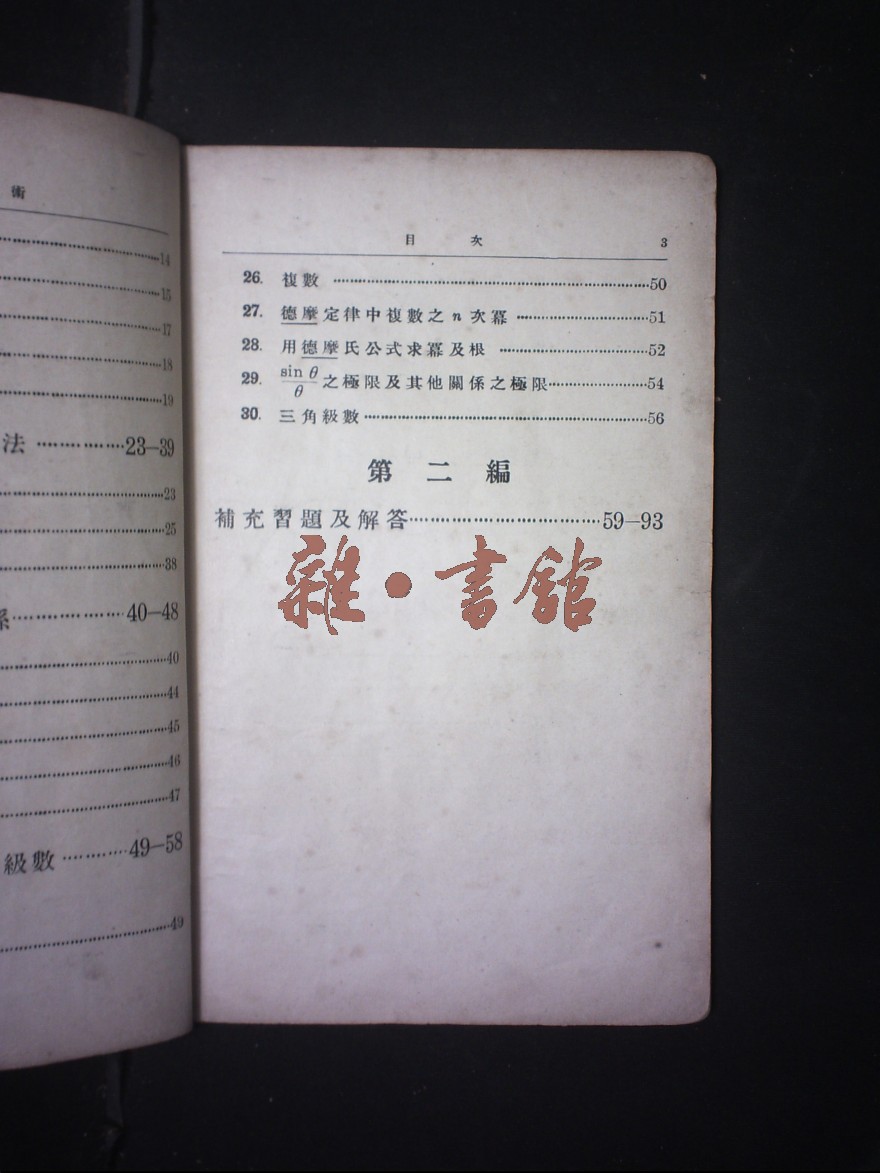 術
14
15
17
18
19
法 ·············· 23—39
23
25
38
係 ·················· 40—48
40
44
45
46
47
級數 ·········· 49—58
49
目 次 3
26. 複數 ·········· 50
27. 德摩定律中複數之 n 次冪 ·········· 51
28. 用德摩氏公式求冪及根 ·········· 52
29. sin θ/θ 之極限及其他關係之極限 ·········· 54
30. 三角級數 ·········· 56
第二編
補充習題及解答 ·········· 59—93
雜·書館